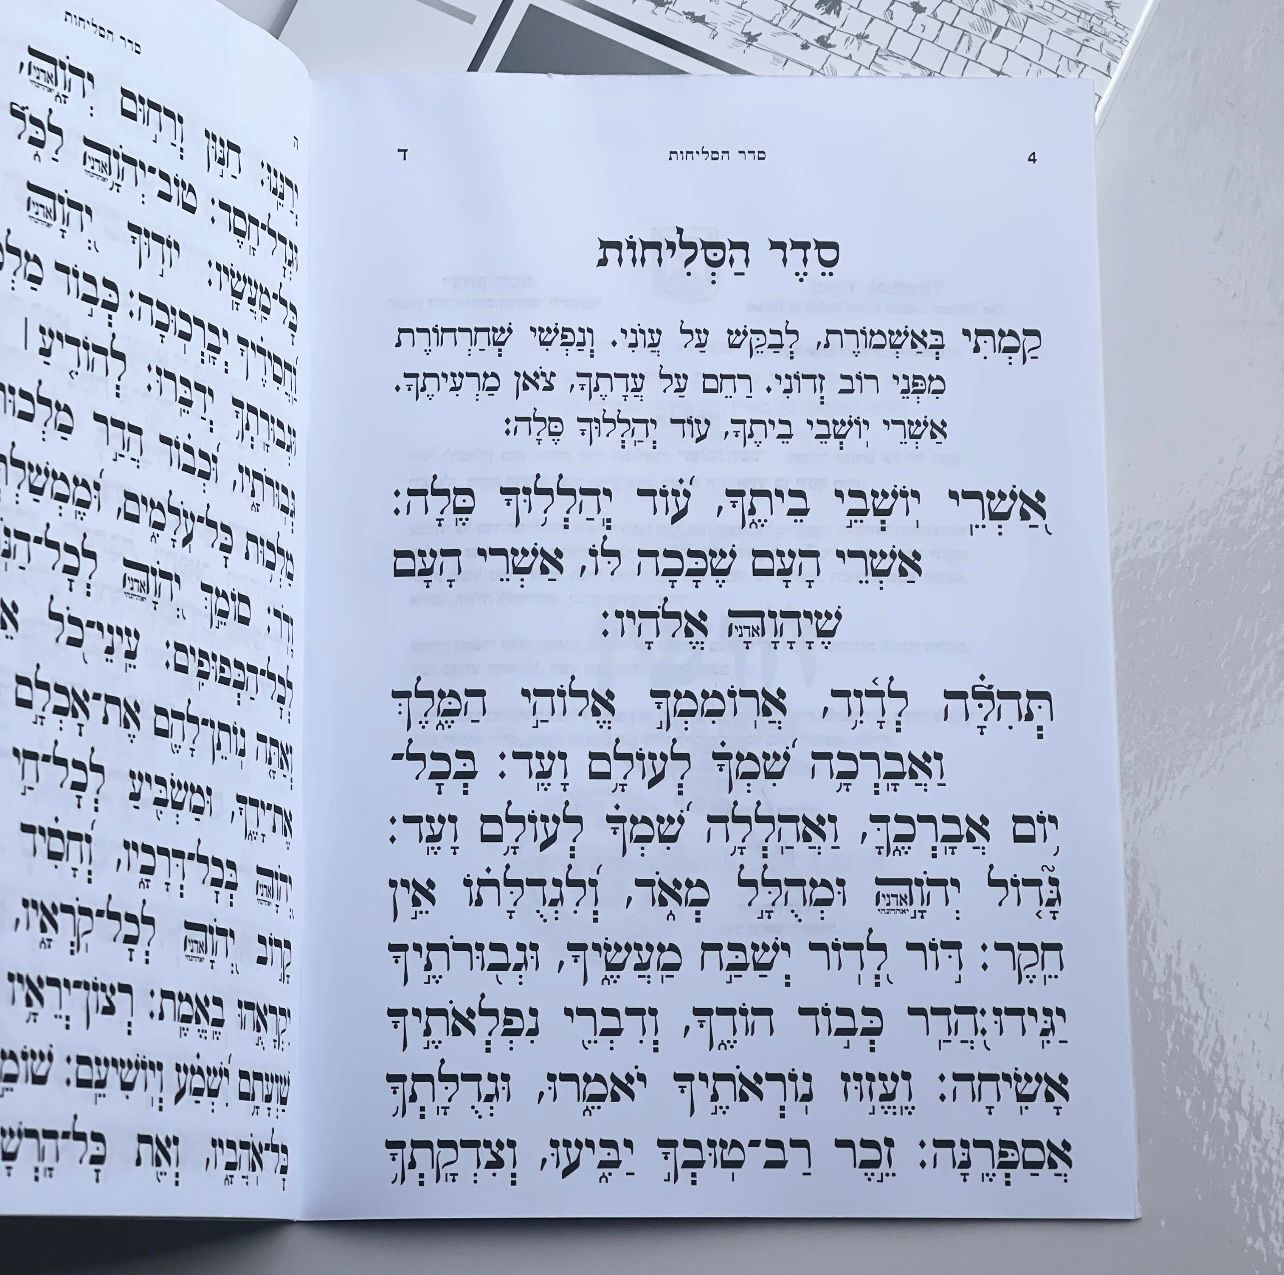 4 סדר הסליחות ד
סֵדֶר הַסְּלִיחוֹת
קַמְתִּי בְּאַשְׁמוֹרֶת, לְבַקֵּשׁ עַל עֲוֹנִי. וְנַפְשִׁי שְׁחַרְחוֹרֶת
מִפְּנֵי רוֹב זְדוֹנִי. רַחֵם עַל עֲדָתֶךָ, צֹאן מַרְעִיתֶךָ.
אַשְׁרֵי יוֹשְׁבֵי בֵיתֶךָ, עוֹד יְהַלְלוּךָ סֶּלָה:
אַשְׁרֵי יוֹשְׁבֵי בֵיתֶךָ, עוֹד יְהַלְלוּךָ סֶּלָה:
אַשְׁרֵי הָעָם שֶׁכָּכָה לּוֹ, אַשְׁרֵי הָעָם
שֶׁיְהֹוָה אדני אֱלֹהָיו:
תְּהִלָּה לְדָוִד אֲרוֹמִמְךָ אֱלוֹהַי הַמֶּלֶךְ
וַאֲבָרְכָה שִׁמְךָ לְעוֹלָם וָעֶד: בְּכָל־
יוֹם אֲבָרְכֶךָּ, וַאֲהַלְלָה שִׁמְךָ לְעוֹלָם וָעֶד:
גָּדוֹל יְהֹוָה אדני וּמְהֻלָּל מְאֹד, וְלִגְדֻלָּתוֹ אֵין
חֵקֶר: דּוֹר לְדוֹר יְשַׁבַּח מַעֲשֶׂיךָ, וּגְבוּרֹתֶיךָ
יַגִּידוּ: הֲדַר כְּבוֹד הוֹדֶךָ, וְדִבְרֵי נִפְלְאֹתֶיךָ
אָשִׂיחָה: וֶעֱזוּז נוֹרְאֹתֶיךָ יֹאמֵרוּ, וּגְדֻלָּתְךָ
אֲסַפְּרֶנָּה: זֵכֶר רַב־טוּבְךָ יַבִּיעוּ, וְצִדְקָתְךָ
ה סדר הסליחות
יְרַנֵּנוּ: חַנּוּן וְרַחוּם יְהֹוָה אדני,
וּגְדָל־חָסֶד: טוֹב־יְהֹוָה אדני לַכֹּל
כָּל־מַעֲשָׂיו: יוֹדוּךָ יְהֹוָה אדני
וַחֲסִידֶיךָ יְבָרְכוּכָה: כְּבוֹד
וּגְבוּרָתְךָ יְדַבֵּרוּ: לְהוֹדִיעַ |
גְּבוּרֹתָיו, וּכְבוֹד הֲדַר
מַלְכוּת כָּל־עֹלָמִים,
וָדֹר: סוֹמֵךְ יְהֹוָה אדני
לְכָל־הַכְּפוּפִים: עֵינֵי־כֹל
וְאַתָּה נוֹתֵן־לָהֶם אֶת־אָכְלָם
אֶת־יָדֶךָ, וּמַשְׂבִּיעַ לְכָל־חַי
יְהֹוָה אדני בְּכָל־דְּרָכָיו, וְחָסִיד
קָרוֹב יְהֹוָה אדני לְכָל־קֹרְאָיו,
יִקְרָאֻהוּ בֶאֱמֶת: רְצוֹן־יְרֵאָיו
שַׁוְעָתָם יִשְׁמַע וְיוֹשִׁיעֵם:
כָּל־אֹהֲבָיו, וְאֵת